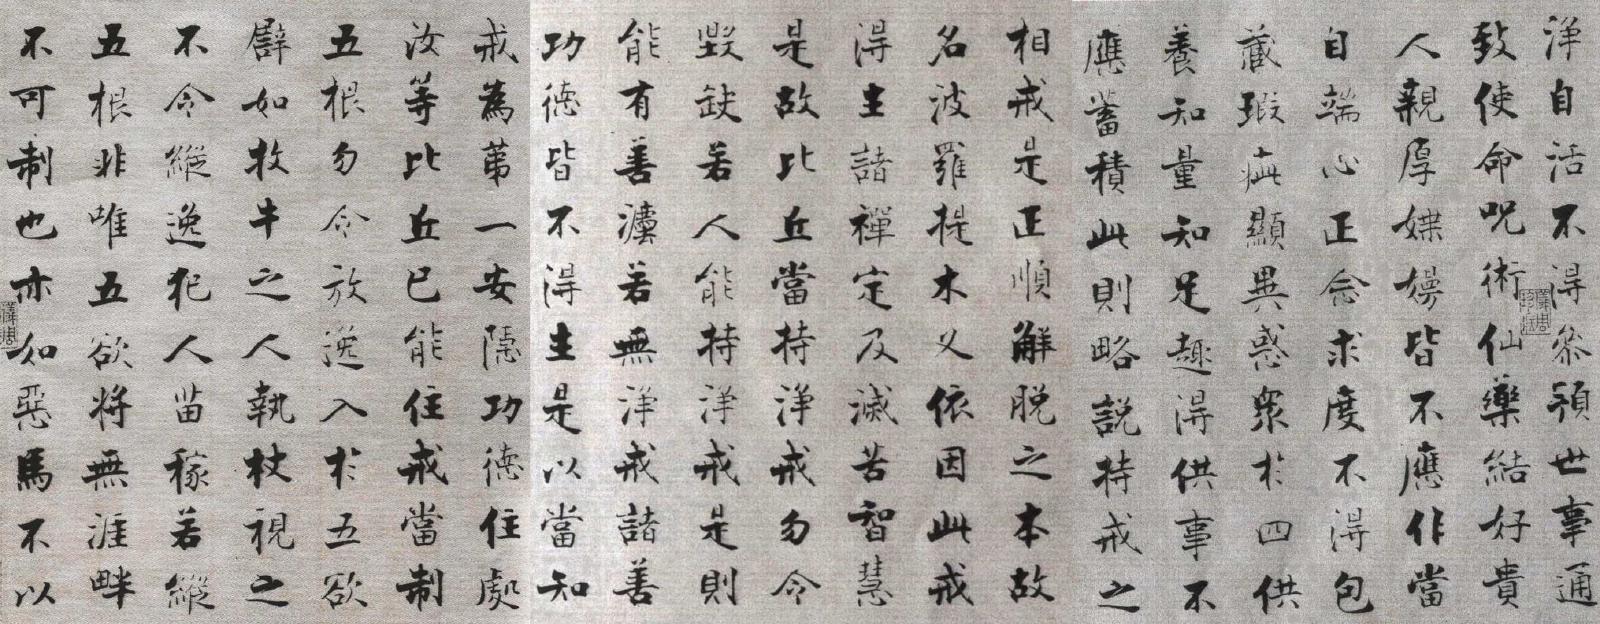 淨自活不得參預世事通
致使命呪術仙藥結好貴
人親厚媟嫚皆不應作當
自端心正念求度不得包
藏瑕疵顯異惑衆於四供
養知量知足趣得供事不
應蓄積此則略説持戒之
相戒是正順解脱之本故
名波羅提木叉依因此戒
得生諸禪定及滅苦智慧
是故比丘當持淨戒勿令
毀缺若人能持淨戒是則
能有善法若無淨戒諸善
功德皆不得生是以當知
戒為第一安隱功德住處
汝等比丘已能住戒當制
五根勿令放逸入於五欲
譬如牧牛之人執杖視之
不令縱逸犯人苗稼若縱
五根非唯五欲將無涯畔
不可制也亦如惡馬不以